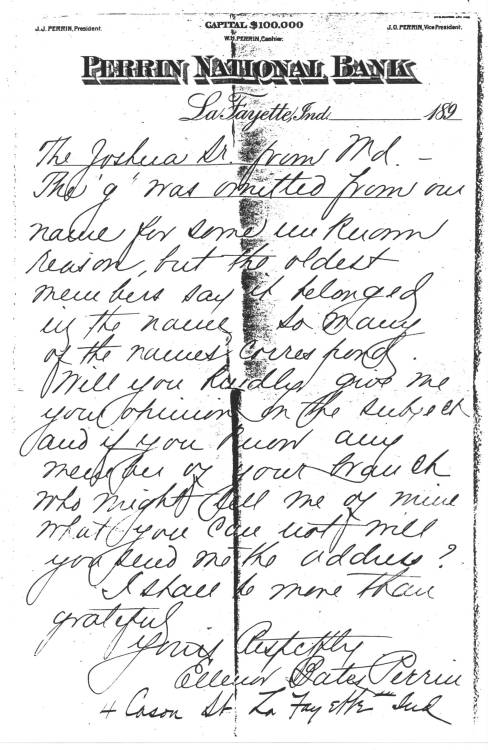 J.J. PERRIN, President.
CAPITAL $100.000
W.H. PERRIN, Cashier.
J.O. PERRIN, Vice President.
PERRIN NATIONAL BANK
LaFayette, Ind. 189
The Joshua Sr. from Md. –
The "g" was omitted from our
name for some unknown
reason, but the oldest
members say it belonged
in the name. So many
of the names correspond.
Will you kindly give me
your opinion on the subject
and if you know any
member of your branch
who might tell me of mine
what you can not, will
you send me the address?
I shall be more than
grateful
Yours Respctfly
Ellenor Oates Perrin
4 Cason St La Fayette Ind